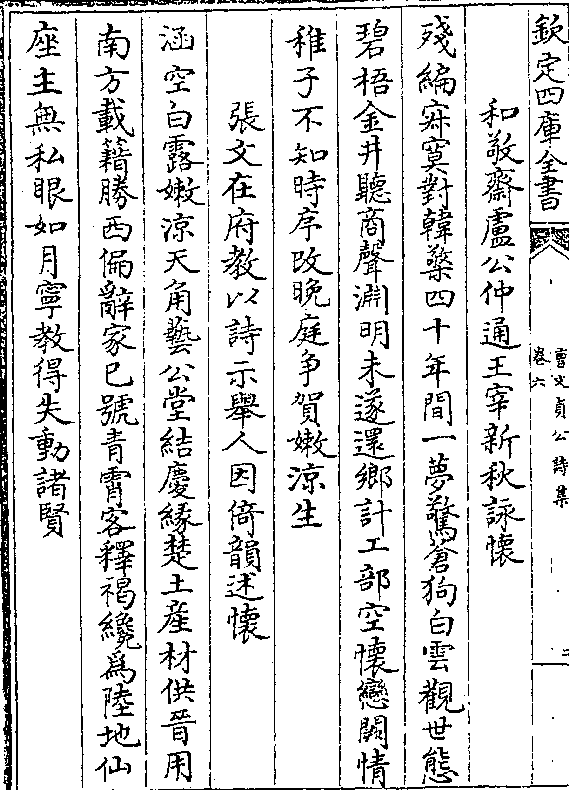 欽定四庫全書
曹文貞公詩集
卷六
二
和敬齋盧公仲通王宰新秋詠懷
殘編寂寞對韓檠四十年間一夢驚蒼狗白雲觀世態
碧梧金井聽商聲淵明未遂還鄉計工部空懷戀闕情
稚子不知時序改晚庭争賀嫩涼生
張文在府教以詩示舉人因倚韻述懷
涵空白露嫩涼天角藝公堂結慶緣楚土産材供晉用
南方載籍勝西偏辭家已號青霄客釋褐纔爲陸地仙
座主無私眼如月寧教得失動諸賢